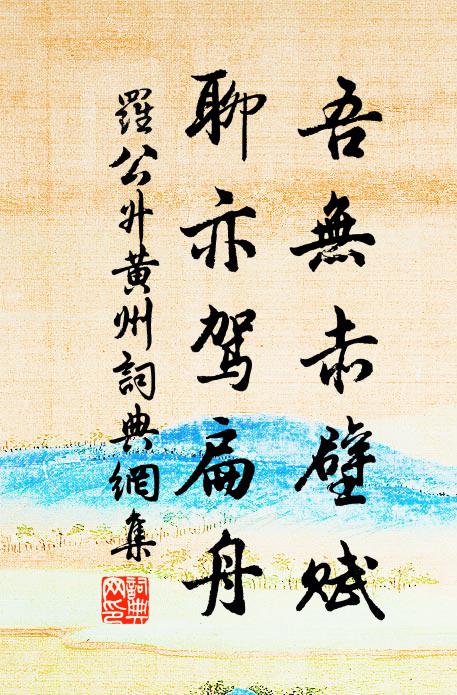 吾無赤壁賦
聊亦駕扁舟
羅公升黃州詞典網集